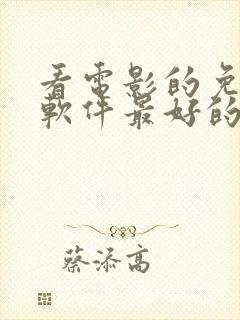 看电影的免
软件最好的
蔡添高